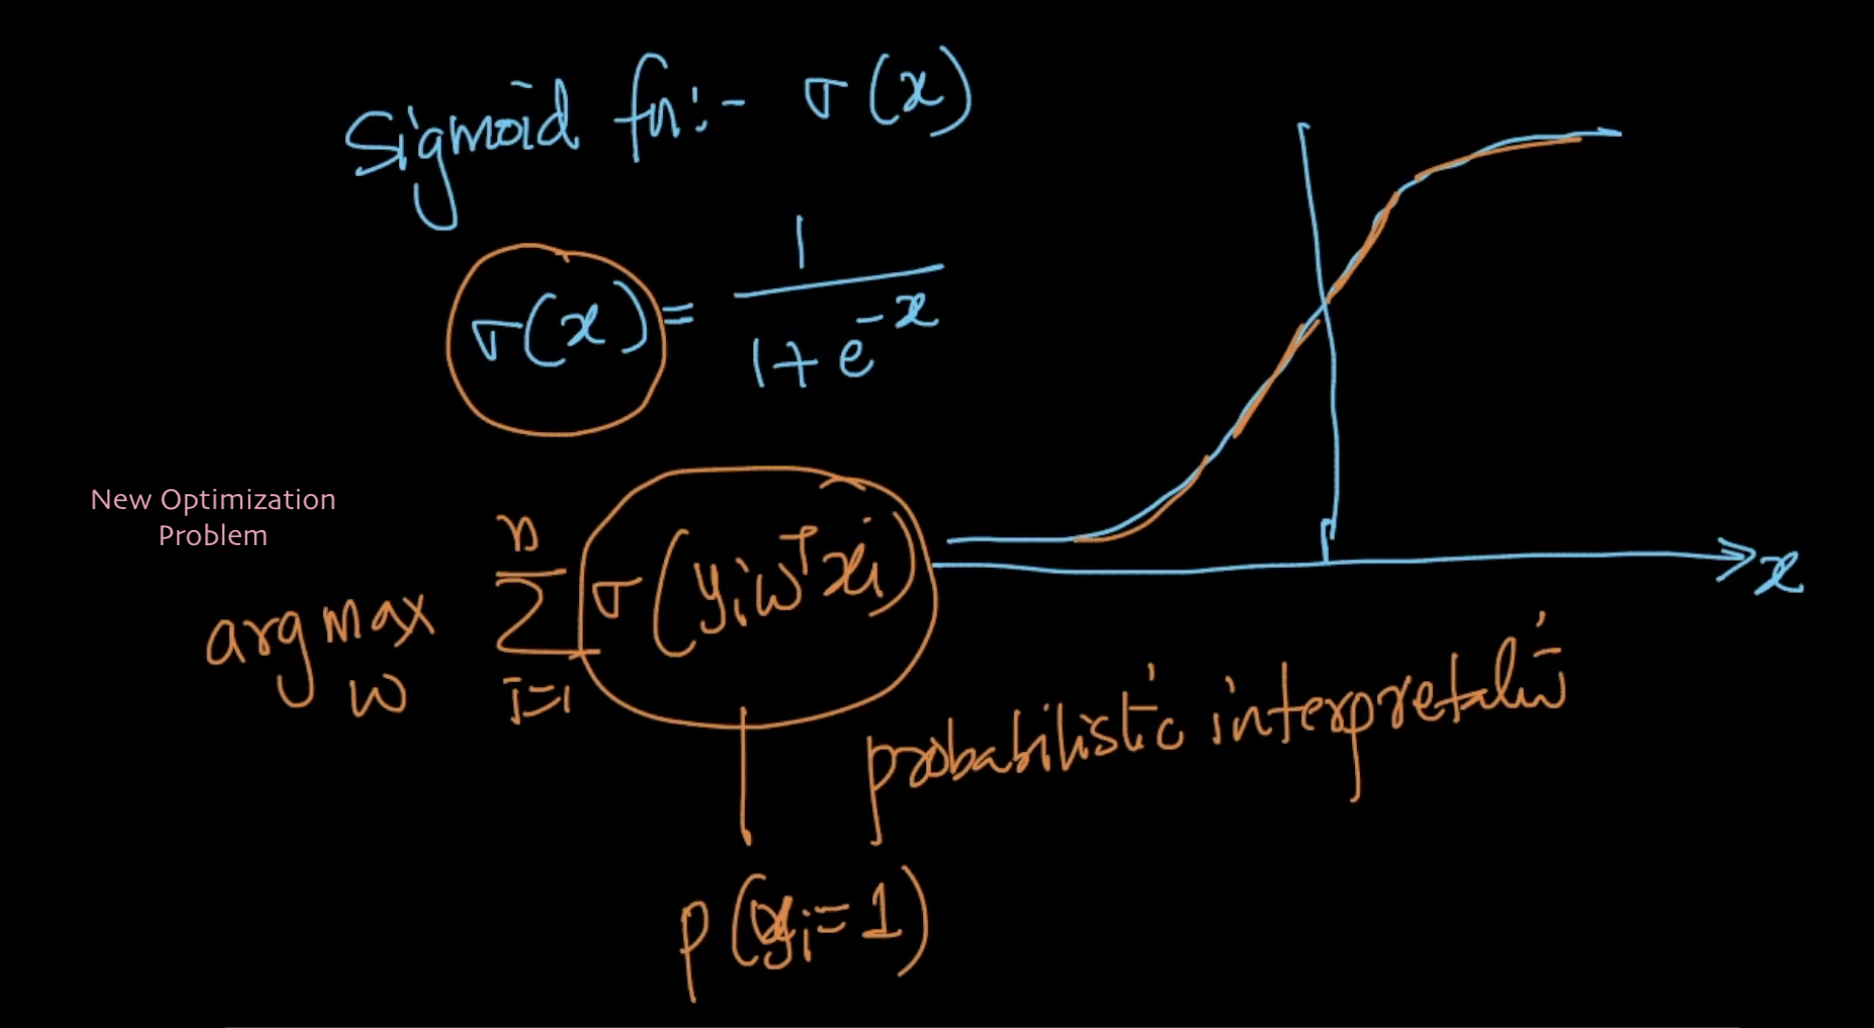 Sigmoid fn:- σ(x)
σ(x) = 1 / (1 + e^-x)
New Optimization
Problem
argmax_w Σ_{i=1}^{n} σ(y_i w^T x_i)
x
probabilistic interpretatiō
P(y_i = 1)